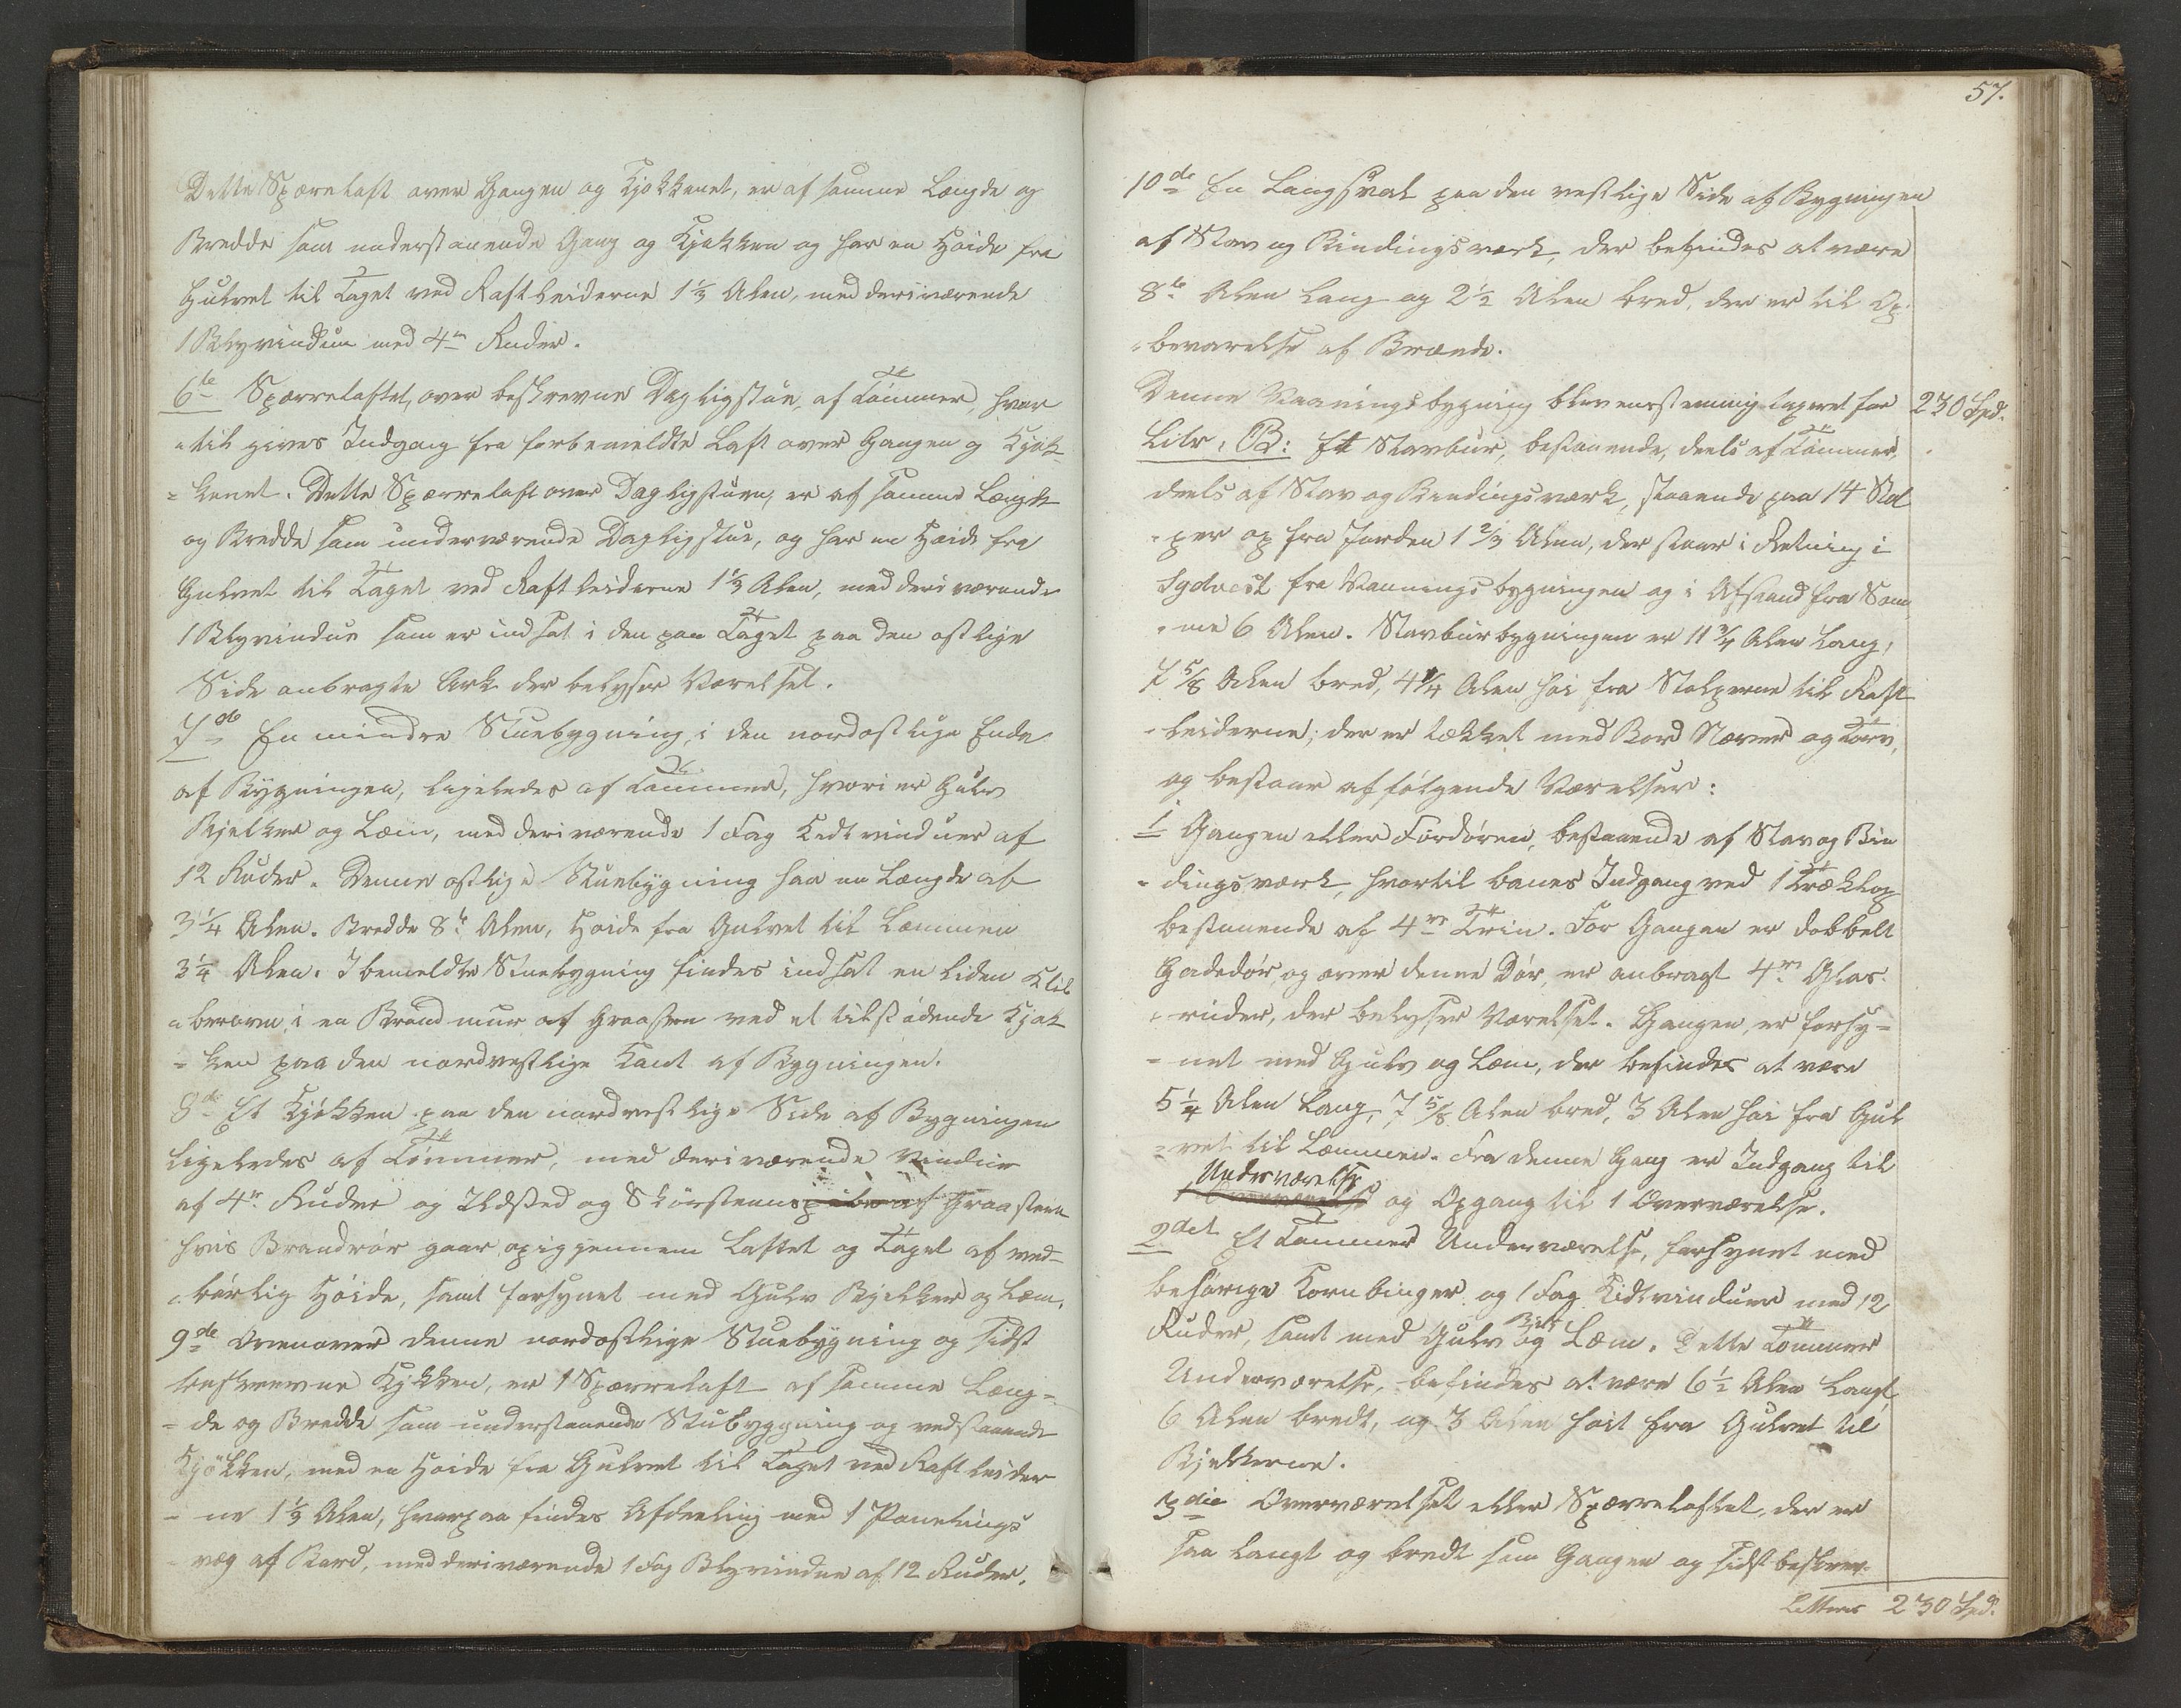 Dette Spærreloft over Gangen og Kjøkkenet, er af samme Længde og
Bredde som understaaende Gang og Kjøkken og har en Høide fra
Gulvet til Taget ved Raftleiderne 1 1/3 Alen, med deriværende
1 Blyvindue med 4re Ruder.
6te Spærreloftet, over beskrevne Dagligstue, af Tømmer, hvor
"til gives Indgang fra forbemeldte Loft over Gangen og Kjøk-
=kenet. Dette Spærreloft over Dagligstuen, er af samme Længde
og Bredde som underværende Dagligstue, og har en Høide fra
Gulvet til Taget ved Raftleiderne 1 1/3 Alen, med deriværende
1 Blyvindue som er indsat i den paa Taget paa den østlige
Side anbragte Ark der belyser Værelset.
7de En mindre Stuebygning, i den nordøstlige Ende
af Bygningen, ligeledes af Tømmer, hvori er Gulv
Bjelker og Læm, med deriværende 1 Fag Kidtvinduer af
12 Ruder. Denne østlige Stuebygning har en Længde af
3 1/4 Alen. Bredde 8te Alen, Høide fra Gulvet til Læmmen
3 1/4 Alen. I bemeldte Stuebygning findes indsat en liden Klæ
"berovn, i en Brandmuur af Graasten ved et tilstødende Kjøk
=ken paa den nordvestlige Kant af Bygningen.
8de Et Kjøkken paa den nordvestlige Side af Bygningen
ligeledes af Tømmer, med deriværende Vindue
af 4re Ruder og Ildsted og Skorsteenspibe af Graasteen
hvis Brandrør gaar op igjennem Loftet og Taget af ved-
"børlig Høide, samt forsynet med Gulv Bjelker og Læm.
9de Ovenover denne nordøstlige Stuebygning og sidst
beskrevne Kjøkken, er 1 Spærreloft af samme Læng=
=de og Bredde som understaaende Stubyggning og vedstaaende
Kjøkken, med en Høide fra Gulvet til Taget ved Raftleider
=ne 1 1/3 Alen, hvorpaa findes Afdeeling med 1 Panelings
=væg af Bord, med deriværende 1 Fag Blyvindue af 12 Ruder.
57.
10de En Langsval paa den vestlige Side af Bygningen
af Stav og Bindingsværk, der befindes at være
8te Alen lang og 2 1/2 Alen bred, der er til Op
"bevarelse af Brænde.
Denne Vaaningsbygning blev eenstemmig taxeret for 230 Spd.
Litr. B: Et Stavbuur, bestaaende, deels af Tømmer,
deels af Stav og Bindingsværk, staaende paa 14 Stol
"per op fra Jorden 1 2/3 Alen, der staar i Retning i
Sydvest fra Vaaningsbygningen og i Afstand fra Sam
"me 6 Alen. Stavbuurbygningen er 11 3/4 Alen lang,
7 5/8 Alen bred, 4 1/4 Alen høi fra Stolperne til Raft
"leiderne; der er tækket med Bord Næver og Torv,
og bestaar af følgende Værelser:
1 Gangen eller Fordøren, bestaaende af Stav og Bin
=dingsværk, hvortil banes Indgang ved 1 Trækkop
bestaaende af 4re Trin. For Gangen er dobbelt
Gadedør, og over denne Dør, er anbragt 4re Glas
"ruder, der belyser Værelset. Gangen, er forsy=
=net med Gulv og Læm, der befindes at være
5 1/4 Alen lang, 7 5/8 Alen bred, 3 Alen høi fra Gul
=vet til Læmmen. Fra denne Gang er Indgang til
Underværelse
1 Overværelse og Opgang til 1 Overværelse.
2det Et Tømmer Underværelse, forsynet med
behørige Kornbinger og 1 Fag Kidtvinduer med 12
Ruder, samt med Gulv og Læm. Dette Tømmer
Underværelse, befindes at være 6 1/2 Alen langt,
6 Alen bredt, og 3 Alen høit fra Gulvet til
Bjelkerne.
3die Overværelset eller Spærreloftet, der er
saa langt og bredt som Gangen og sidst beskrev-
Lattus 230 Spd.